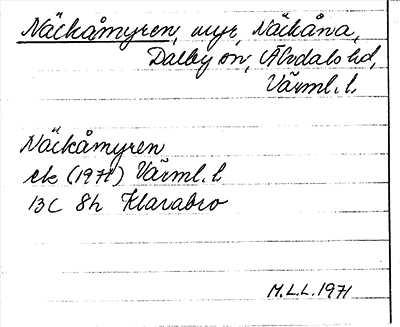 Näckåmyren, myr, Näckåna,
Dalby sn, Älvdals hd,
Värml. l.
Näckåmyren
ek (1971) Värml. l.
13C 8h Klarabro
M.L.L. 1971